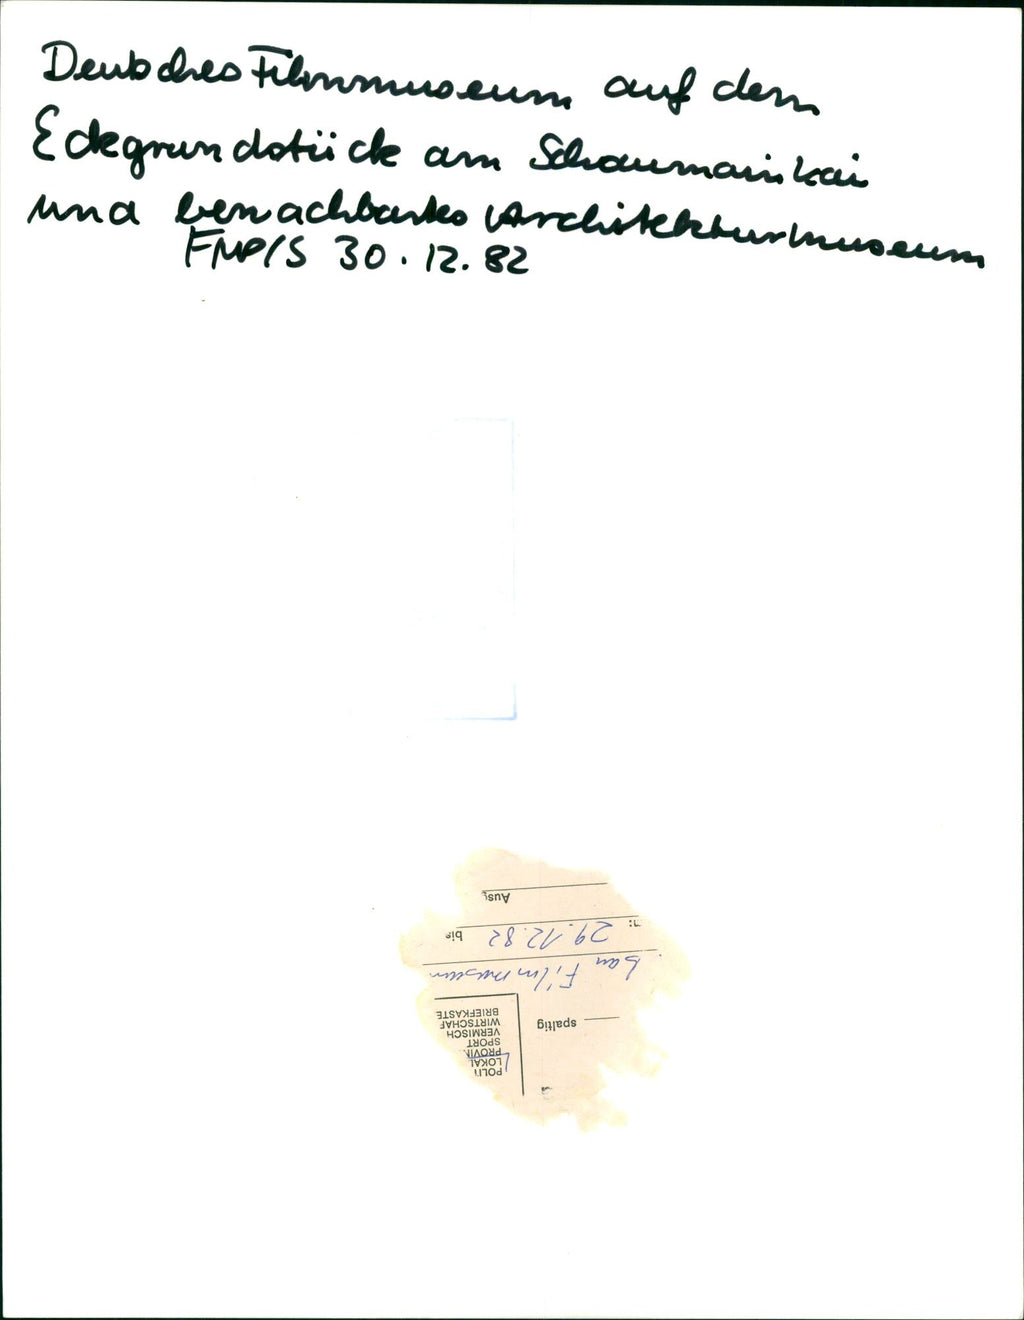 Deutsches Filmmuseum auf dem
Eckgrundstück am Schaumainkai
und benachbartes Architekturmuseum
FNP/S 30.12.82
POLIT
LOKAL
PROVIN
SPORT
VERMISCH
WIRTSCHAF
BRIEFKASTE
spaltig
bau Filmmuseum
n: 29.12.82 bis
Ausg